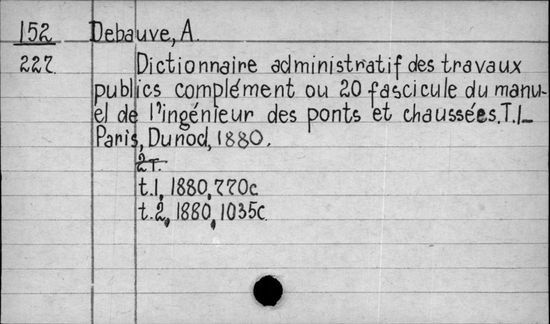 152 Debauve, A.
227. Dictionnaire administratif des travaux
publics complément ou 20 fascicule du manu-
el de l'ingénieur des ponts et chaussées. T.1_
Paris, Dunod, 1880.
2т.
t.1, 1880, 770c
t.2, 1880, 1035c.